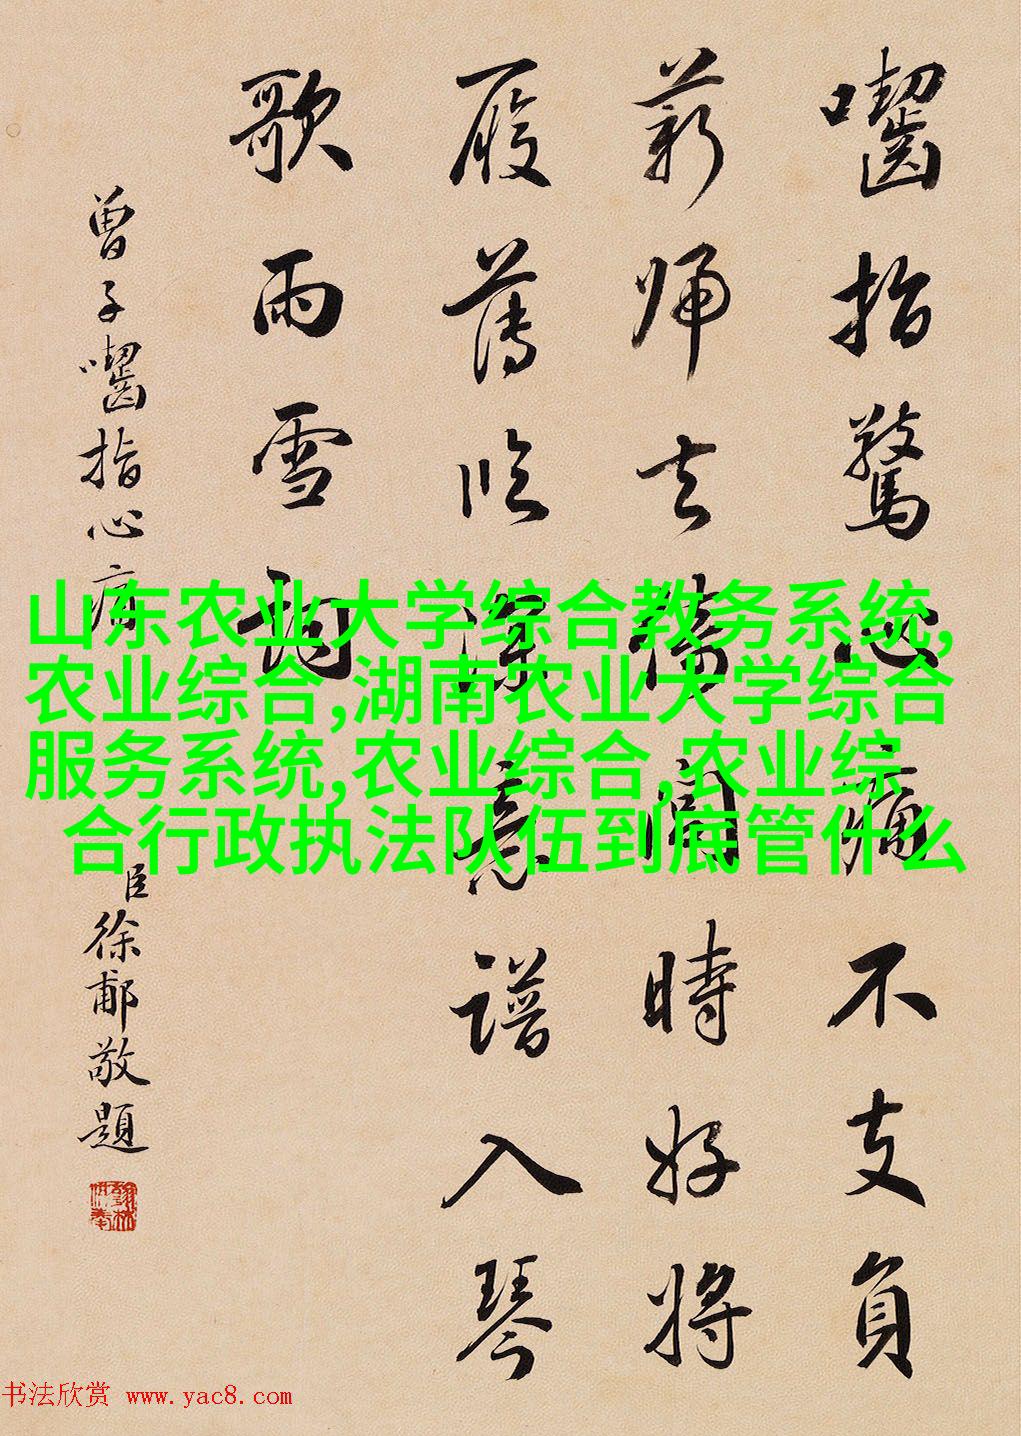 囓指驚心痛不支負
薪歸去倚閭時好將
履薄臨深意譜入琴
歌雨雪詞
曾子囓指心痛
臣徐郙敬題
山东农业大学综合教务系统,
农业综合,湖南农业大学综合
服务系统,农业综合,农业综
合行政执法队伍到底管什么
书法欣赏 www.yac8.com